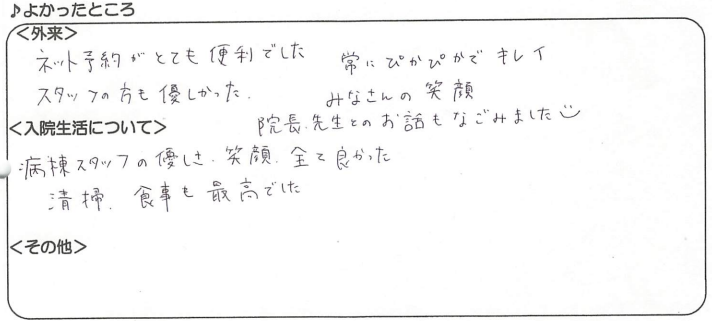 ♪よかったところ
<外来>
ネット予約がとても便利でした
常にぴかぴかでキレイ
スタッフの方も優しかった.
みなさんの笑顔
院長先生とのお話もなごみました
<入院生活について>
病棟スタッフの優しさ、笑顔、全て良かった
清掃、食事も最高でした
<その他>